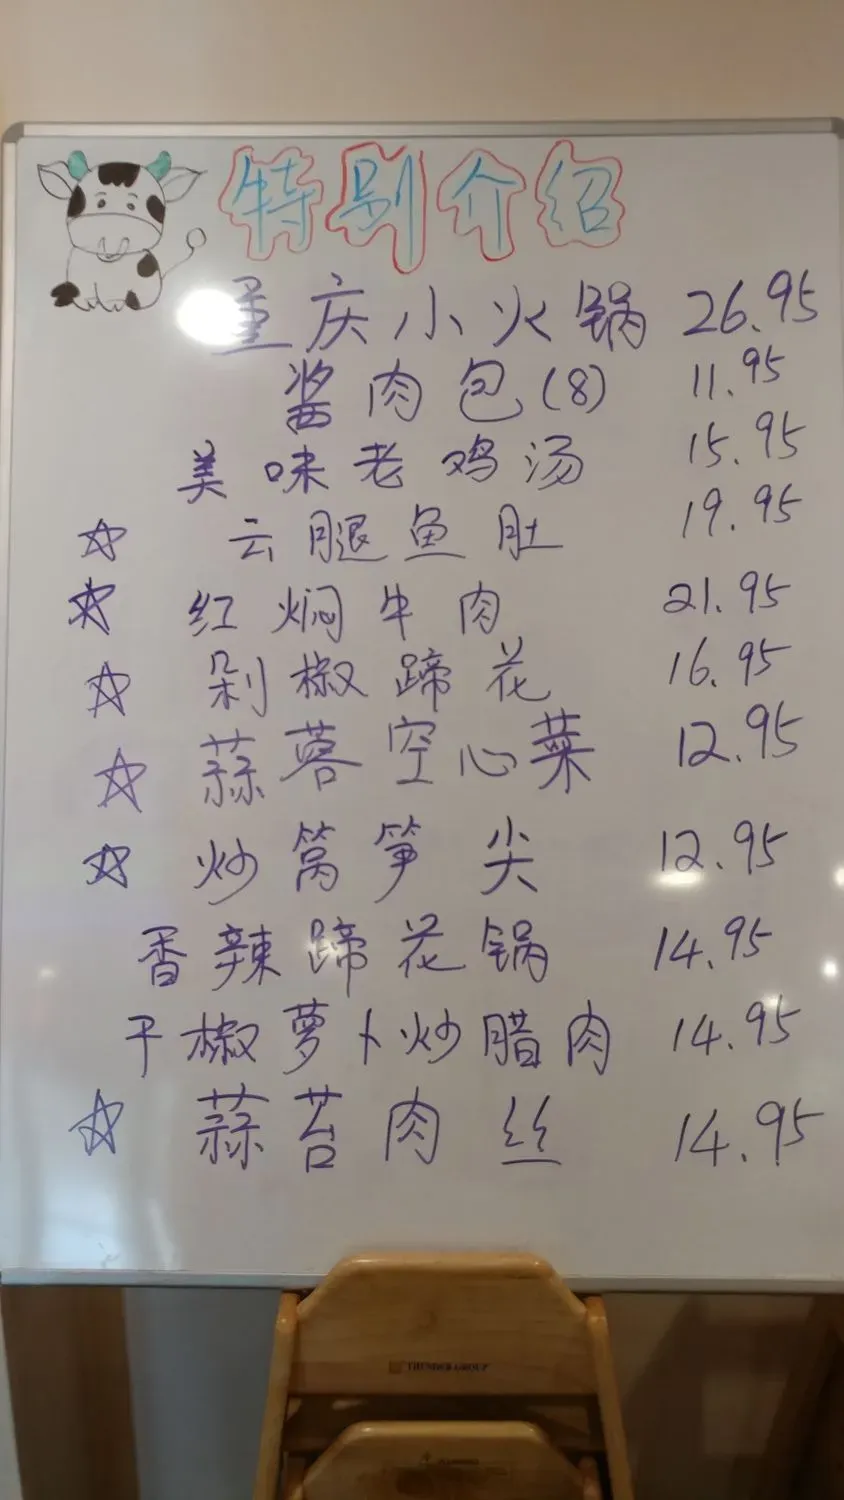 特别介绍
重庆小火锅 26.95
酱肉包(8) 11.95
美味老鸡汤 15.95
☆ 云腿鱼肚 19.95
☆ 红焖牛肉 21.95
☆ 剁椒蹄花 16.95
☆ 蒜蓉空心菜 12.95
☆ 炒莴笋尖 12.95
香辣蹄花锅 14.95
干椒萝卜炒腊肉 14.95
☆ 蒜苔肉丝 14.95
THUNDER GROUP